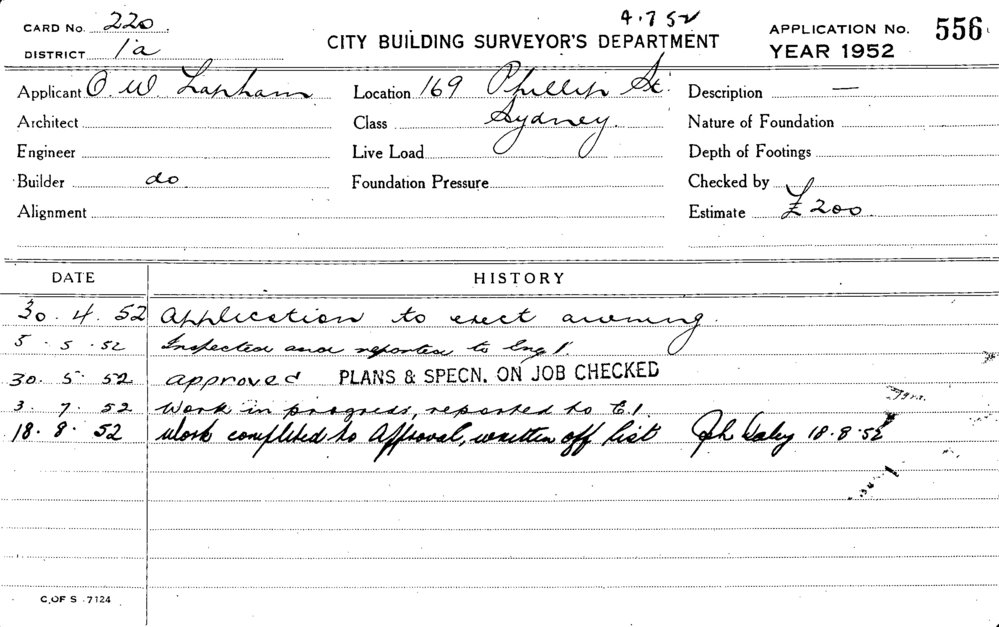 CARD No. 220
4.7.52
APPLICATION No. 556
DISTRICT 1a
CITY BUILDING SURVEYOR'S DEPARTMENT
YEAR 1952
Applicant O. W. Lapham Location 169 Phillip St. Description —
Architect Class Sydney. Nature of Foundation
Engineer Live Load Depth of Footings
Builder do Foundation Pressure Checked by
Alignment Estimate £200
DATE HISTORY
30.4.52 Application to erect awning.
5.5.52 Inspected and reported to Eng 1.
30.5.52 approved PLANS & SPECN. ON JOB CHECKED
3.7.52 Work in progress, reported to E.1.
18.8.52 Work completed to Approval, written off list 18.8.52
C. OF S 7124